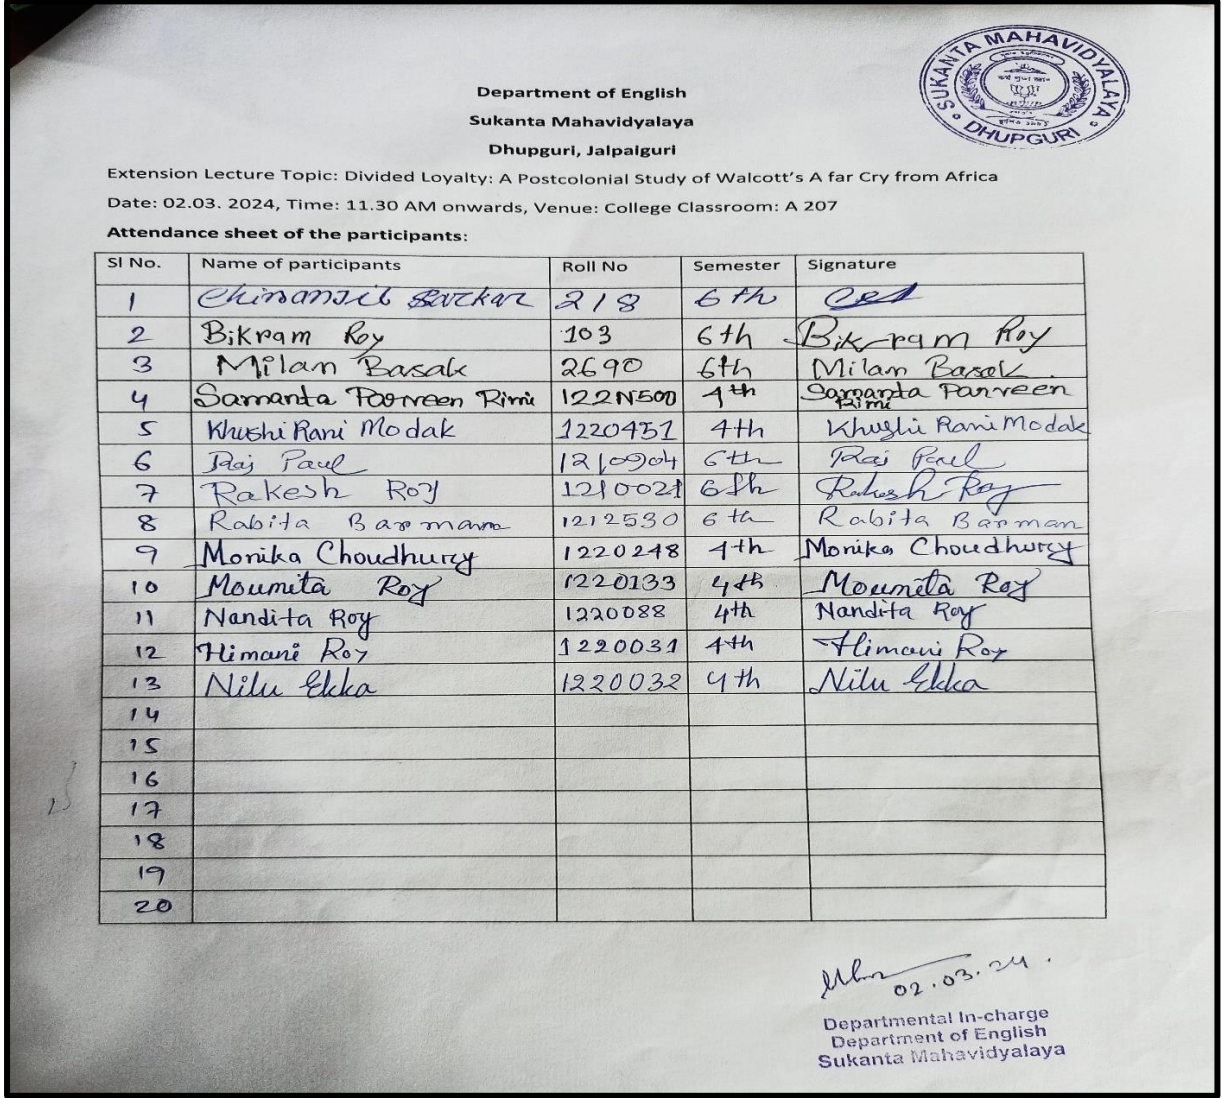 SUKANTA MAHAVIDYALAYA
DHUPGURI
Department of English
Sukanta Mahavidyalaya
Dhupguri, Jalpaiguri
Extension Lecture Topic: Divided Loyalty: A Postcolonial Study of Walcott's A far Cry from Africa
Date: 02.03. 2024, Time: 11.30 AM onwards, Venue: College Classroom: A 207
Attendance sheet of the participants:
Sl No. Name of participants Roll No Semester Signature
1 Chiranjit Sarkar 218 6th
2 Bikram Roy 103 6th Bikram Roy
3 Milan Basak 2690 6th Milan Basak
4 Samanta Parveen Rimi 122N500 4th Samanta Parveen Rimi
5 Khushi Rani Modak 1220451 4th Khushi Rani Modak
6 Raj Paul 1210904 6th Raj Paul
7 Rakesh Roy 1210021 6th Rakesh Roy
8 Rabita Barman 1212530 6th Rabita Barman
9 Monika Choudhury 1220248 4th Monika Choudhury
10 Moumita Roy 1220133 4th Moumita Roy
11 Nandita Roy 1220088 4th Nandita Roy
12 Himani Roy 1220031 4th Himani Roy
13 Nilu Ekka 1220032 4th Nilu Ekka
14
15
16
17
18
19
20
02.03.24.
Departmental In-charge
Department of English
Sukanta Mahavidyalaya